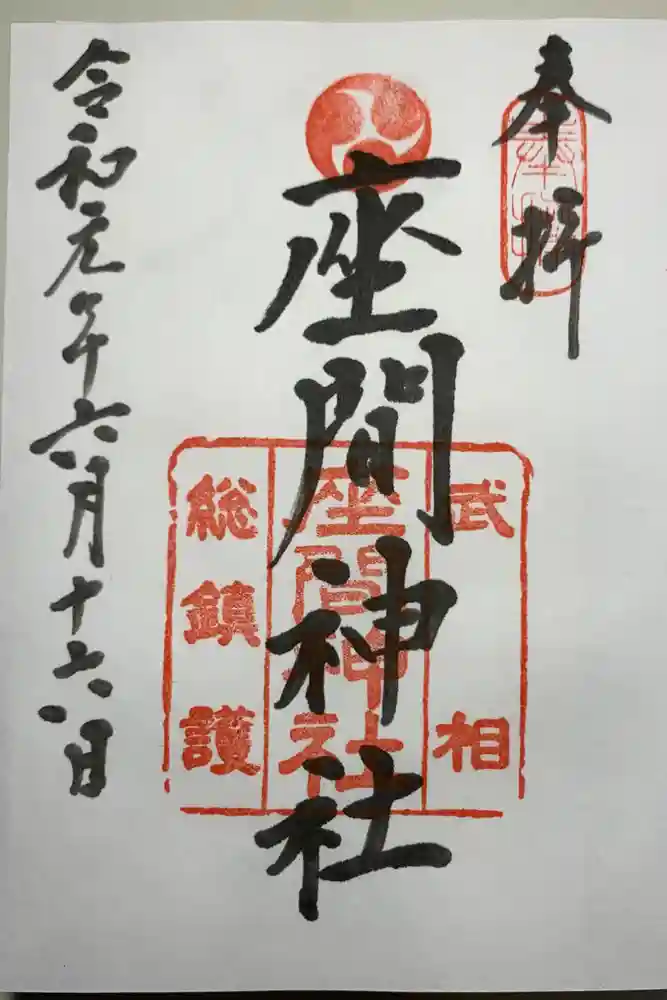 奉拝
武相
座間神社
総鎮護
座間神社
令和元年六月十六日